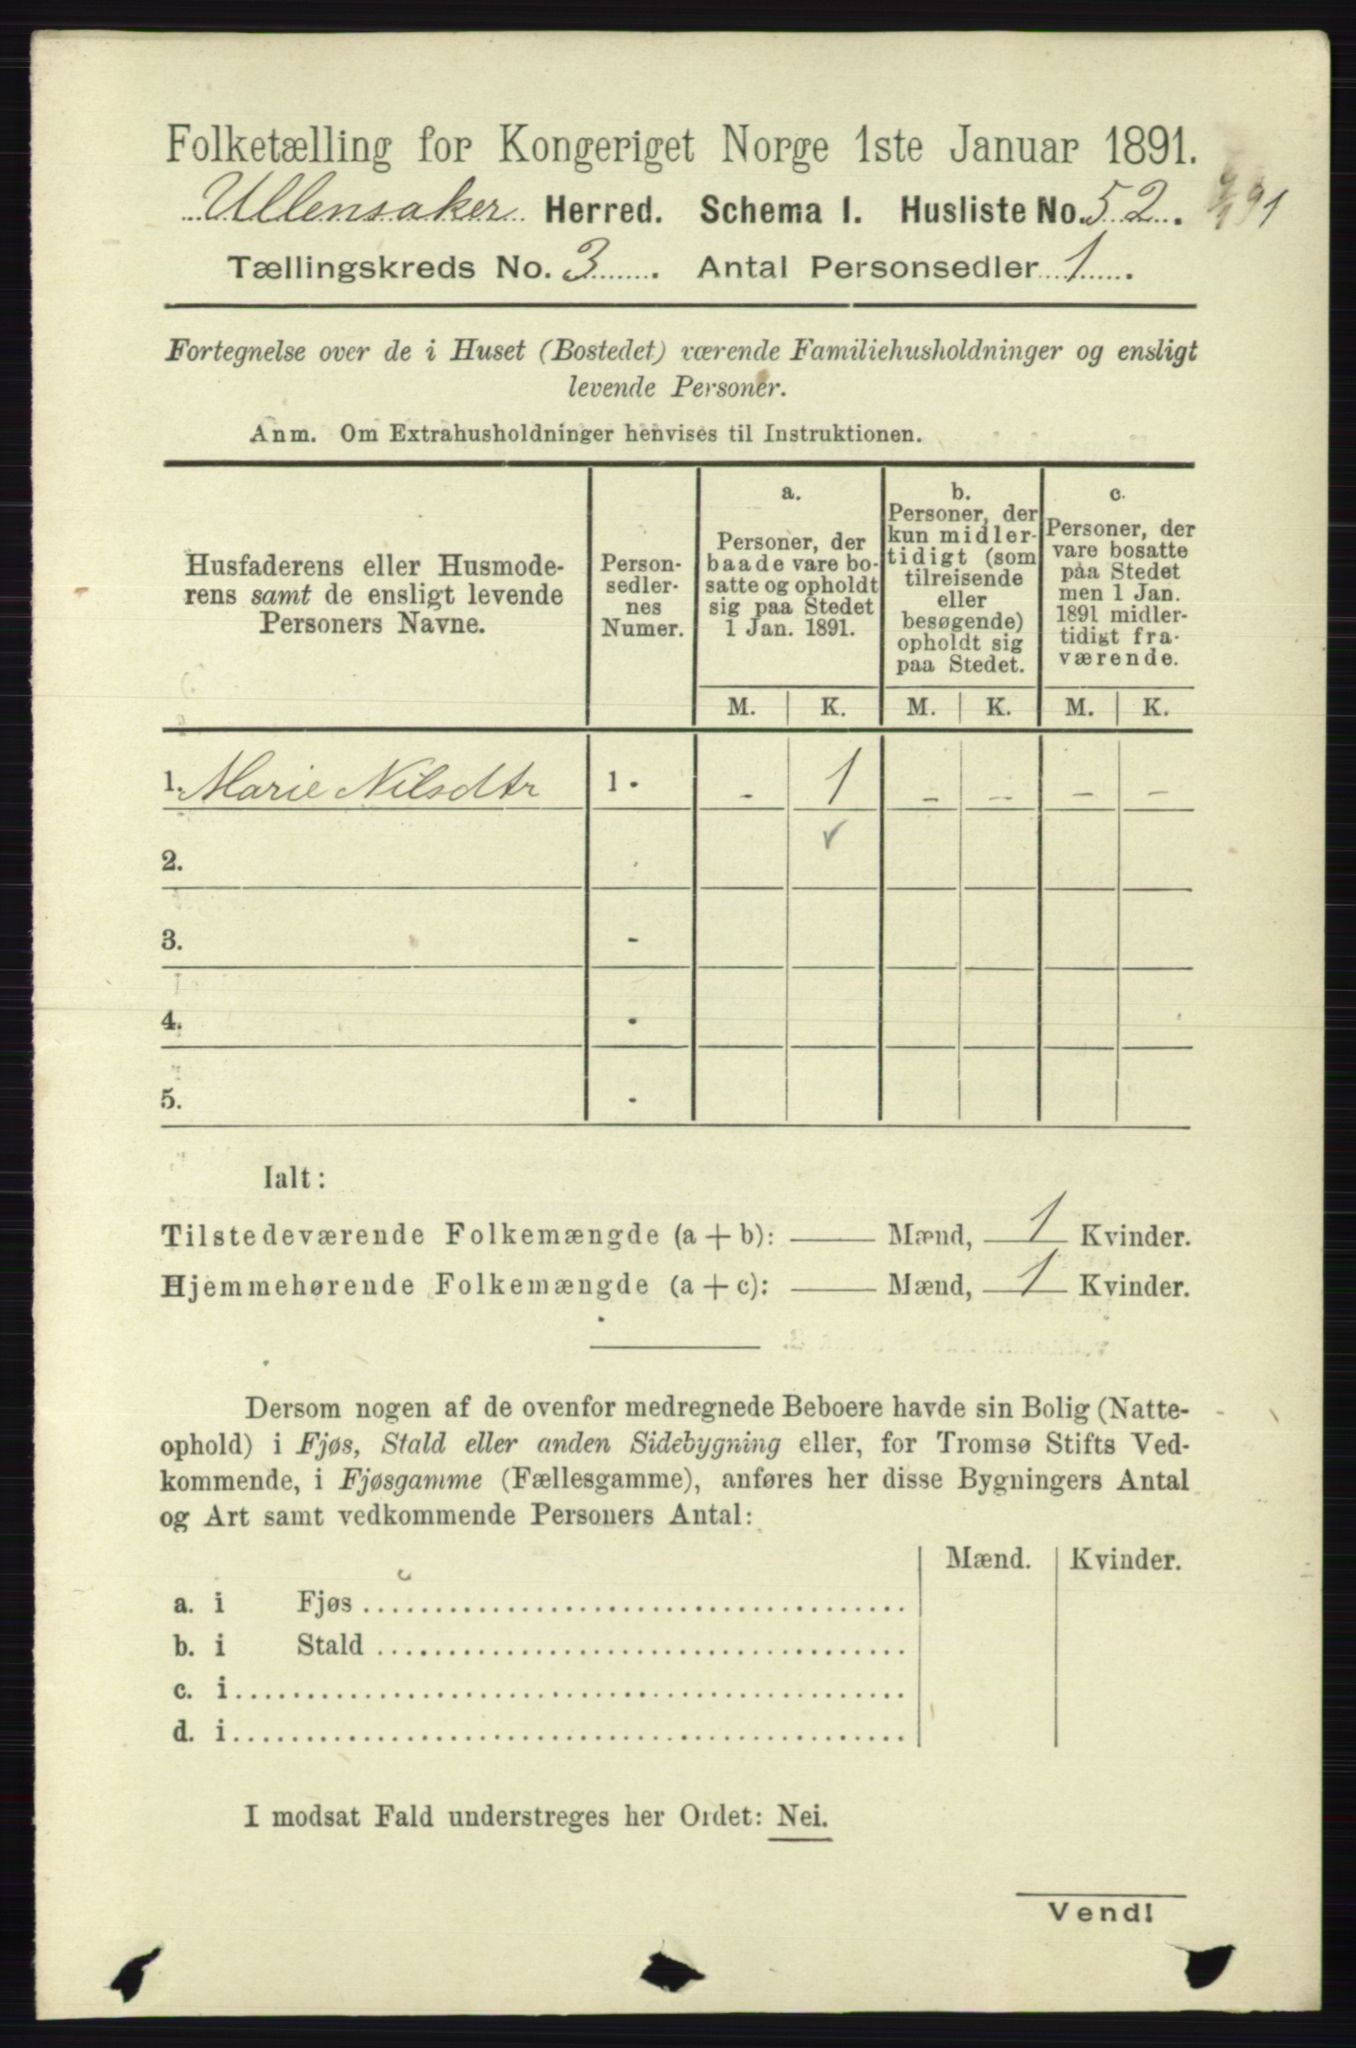 Folketælling for Kongeriget Norge 1ste Januar 1891.
Ullensaker Herred. Schema I. Husliste No. 52.
Tællingskreds No. 3. Antal Personsedler 1.
Fortegnelse over de i Huset (Bostedet) værende Familiehusholdninger og ensligt
levende Personer.
Anm. Om Extrahusholdninger henvises til Instruktionen.
Husfaderens eller Husmode-
rens samt de ensligt levende
Personers Navne.
Person-
sedler-
nes
Numer.
a.
Personer, der
baade vare bo-
satte og opholdt
sig paa Stedet
1 Jan. 1891.
b.
Personer, der
kun midler-
tidigt (som
tilreisende
eller
besøgende)
opholdt sig
paa Stedet.
c.
Personer, der
vare bosatte
paa Stedet
men 1 Jan.
1891 midler-
tidigt fra-
værende.
M. K. M. K. M. K.
1. Marie Nilsdtr 1 - - 1 - - - -
2.
3. -
4. -
5. -
Ialt:
Tilstedeværende Folkemængde (a + b): — Mænd, 1 Kvinder.
Hjemmehørende Folkemængde (a + c): — Mænd, 1 Kvinder.
Dersom nogen af de ovenfor medregnede Beboere havde sin Bolig (Natte-
ophold) i Fjøs, Stald eller anden Sidebygning eller, for Tromsø Stifts Ved-
kommende, i Fjøsgamme (Fællesgamme), anføres her disse Bygningers Antal
og Art samt vedkommende Personers Antal:
Mænd. Kvinder.
a. i Fjøs
b. i Stald
c. i
d. i
I modsat Fald understreges her Ordet: Nei.
Vend!